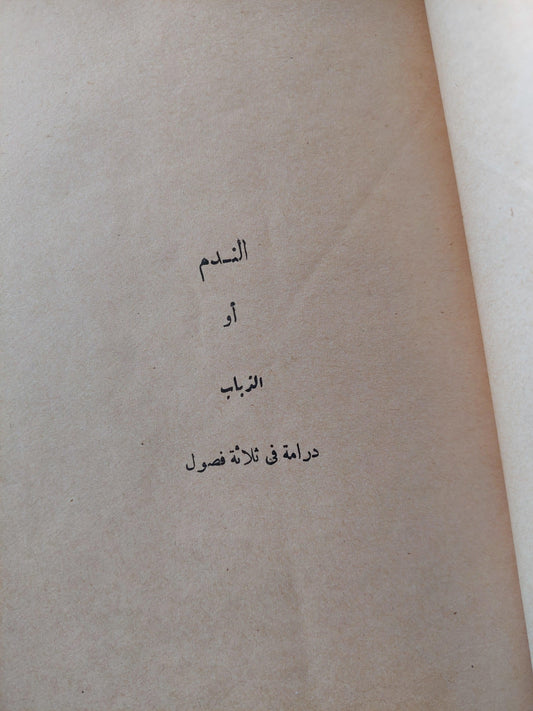 النـدم
أو
الذباب
درامة فى ثلاثة فصول